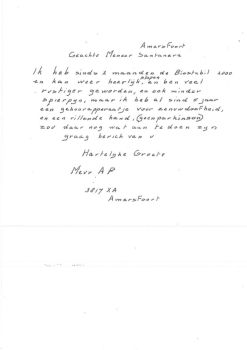 Amersfoort
Geachte Meneer Santanera
Ik heb sinds 2 maanden de Biostabil 2000
en kan weer heerlijk slapen, en ben veel
rustiger geworden, en ook minder
spierpyn, maar ik heb al sind 5 jaar
een gehoorapparaatje voor eenoordoofheid,
en een rillende hand, (geen parkinson)
zou daar nog wat aan te doen zyn
graag bericht van u
Hartelyke Groete
Mevr A P
3817 XA
Amersfoort